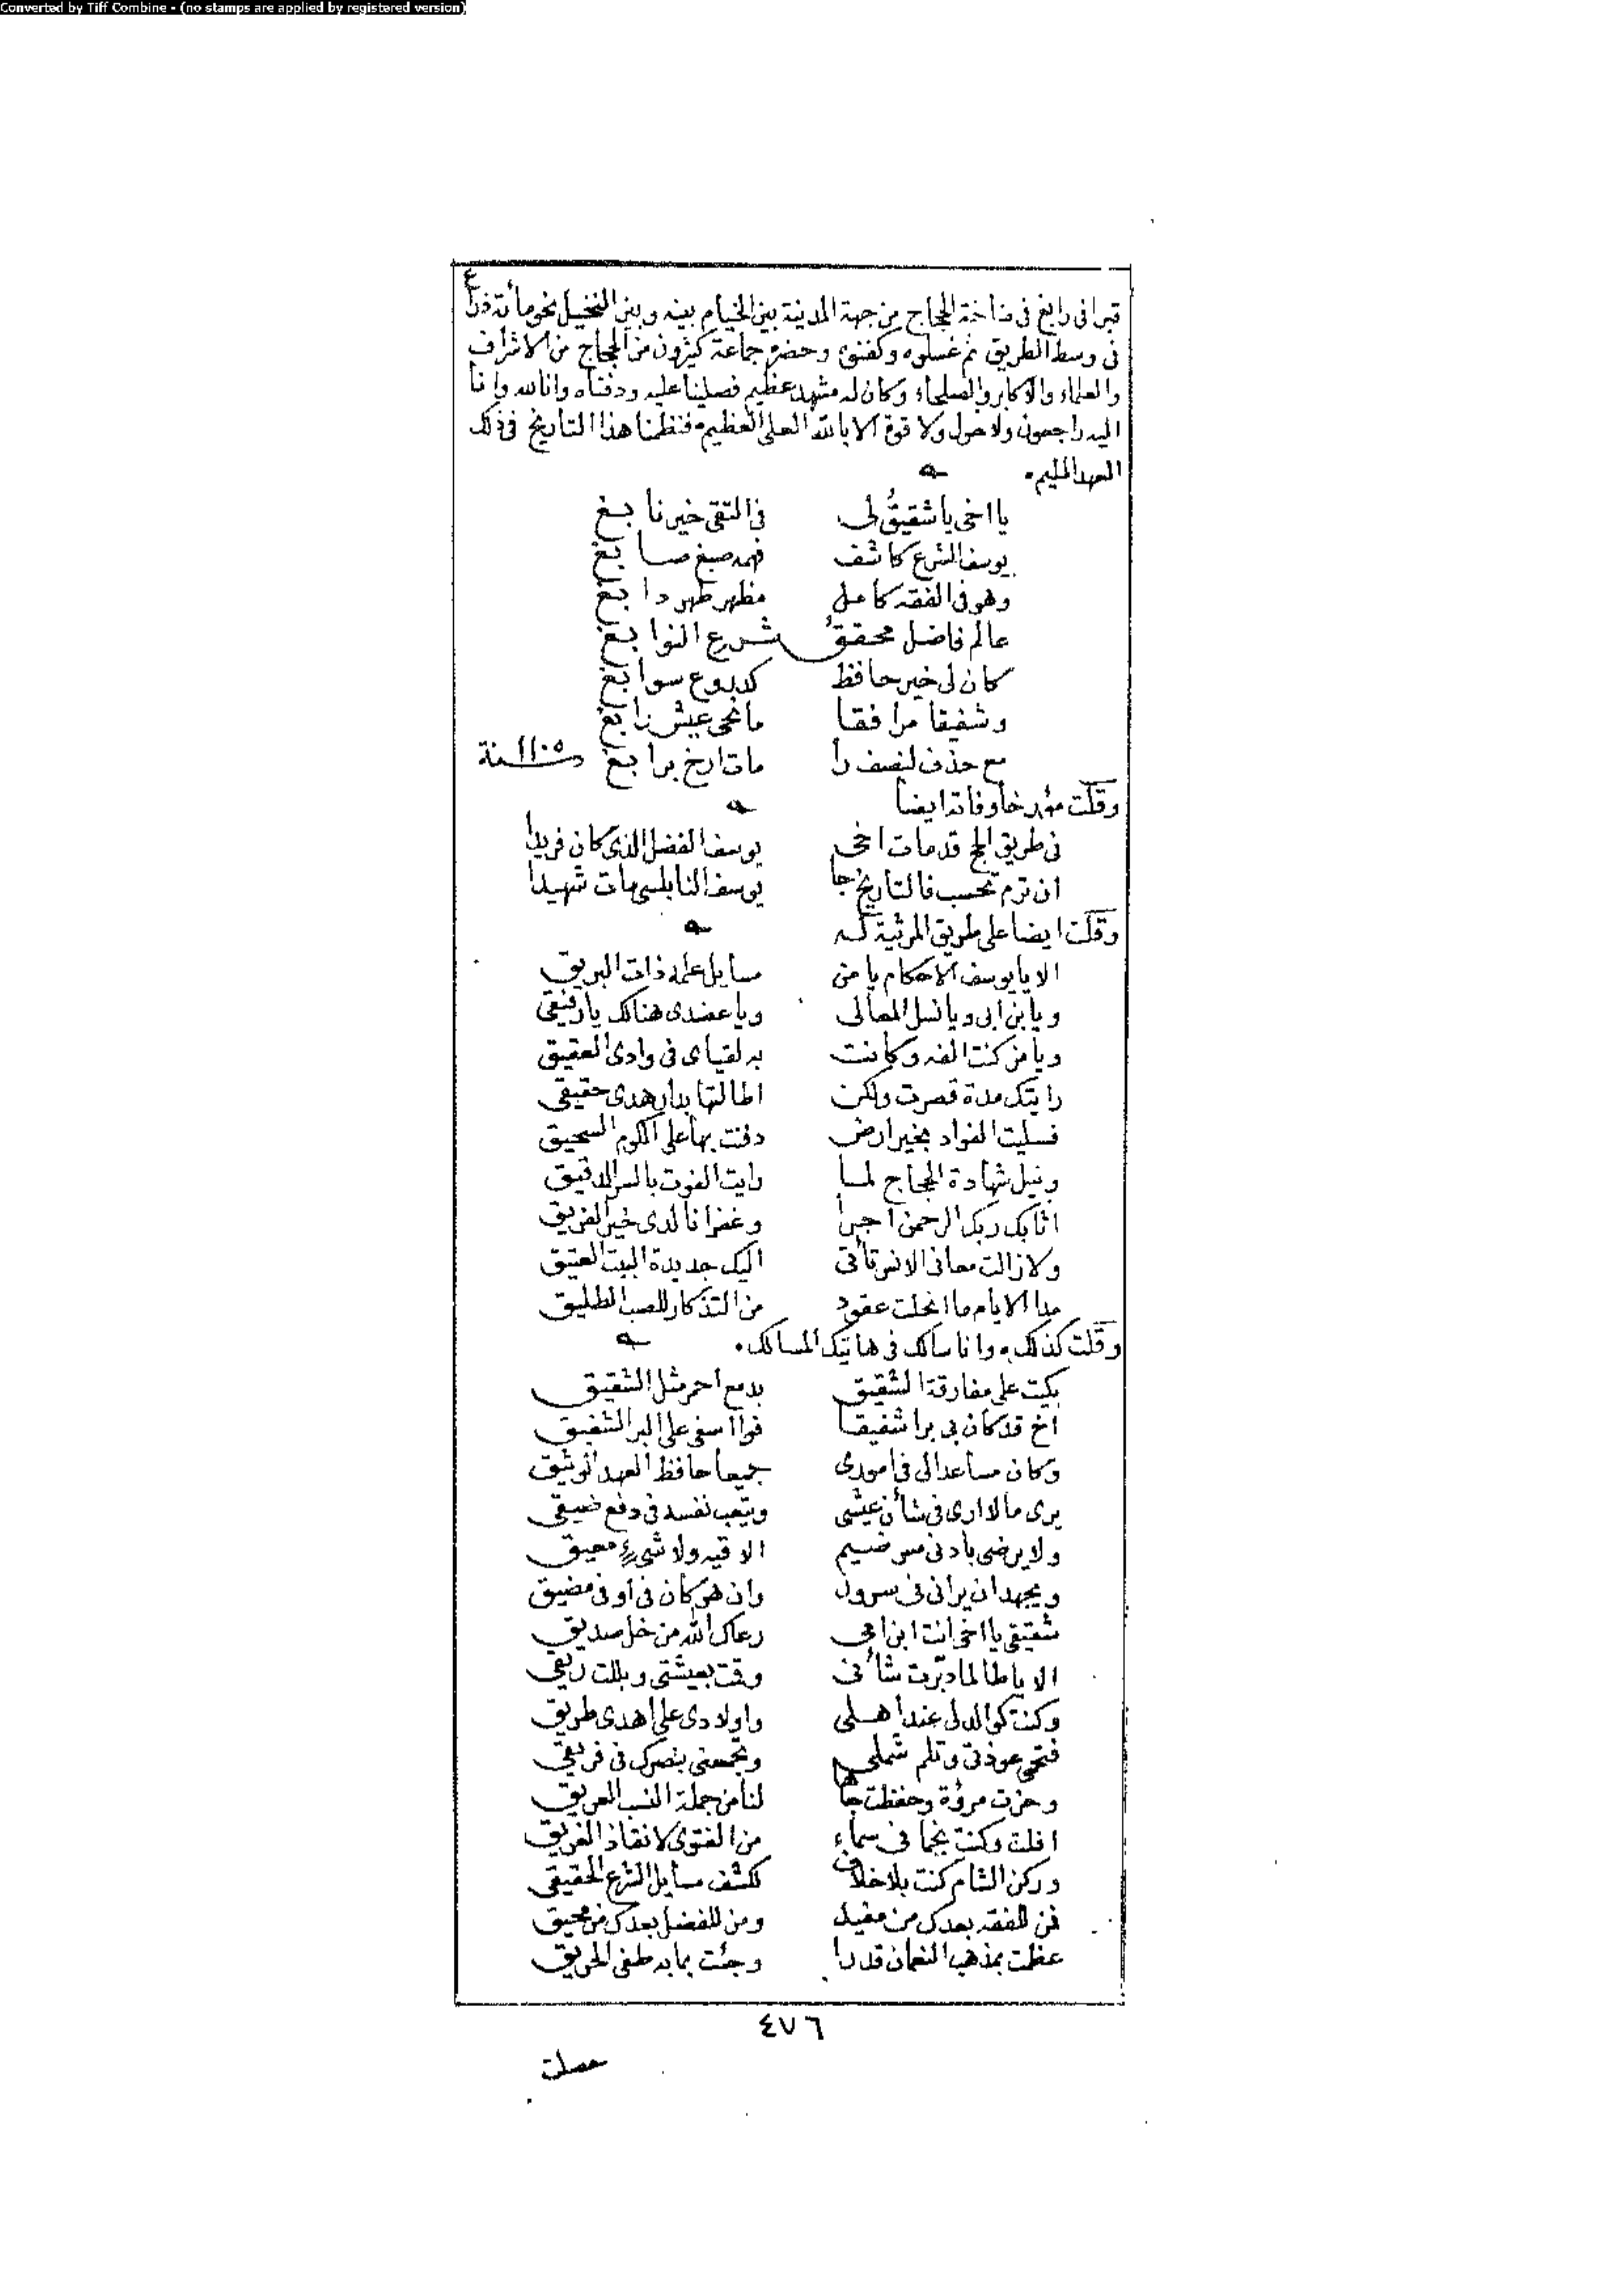 Converted by Tiff Combine - (no stamps are applied by registered version)
قبرا فى رابغ فى مناخة الحجاج من جهة المدينة بين الخيام بينه وبين النخيل نحو مائة ذراع
فى وسط الطريق ثم غسلوه وكفنوه وحضره جماعة كثيرون من الحجاج من الاشراف
والعلماء والاكابر والصلحاء وكان له مشهد عظيم فصلينا عليه ودفناه وانا لله وانا
اليه راجعون ولا حول ولا قوة الا بالله العلى العظيم فنظمنا هذا التاريخ فى ذلك
العهد المليم
يا اخى يا شقيق لى فى التقى خير نابغ
يوسف الشرع كاشف فهمه صبغ صابغ
وهو فى الفقه كامل مظهر طهر دابغ
عالم فاضل محقق شرع النوابغ
كان لى خير حافظ كدروع سوابغ
وشفيقا مرافقا ما نحى عيش رابغ
مع حذف لنصف را مات ارخ برابغ سنة ١١٠٥
وقلت مؤرخا وفاته ايضا
فى طريق الحج قد مات اخى يوسف الفضل الذى كان فريدا
ان ترم تحسب فالتاريخ جا يوسف النابلسى مات شهيدا
وقلت ايضا على طريق المرثية له
الا يا يوسف الاحكام يا من مسايل علمه ذات البريق
ويا بن ابى ويا نسل المعالى ويا عضدى هنالك يا رفيقى
ويا من كنت الفه وكانت به لقياى فى وادى العقيق
رايتك مدة قصرت ولكن اطالتها بدار هدى حقيقى
فسليت الفواد بخير ارض دفنت بها على الكوم السحيق
ونيل شهادة الحجاج لما رايت الفوت بالسر الدقيق
اثابك ربك الرحمن اجرا وغفرانا لدى خير الفريق
ولا زالت معانى الانس تأتى اليك جديدة البيت العتيق
مدا الايام ما انحلت عقود من التذكار للصب الطليق
وقلت كذلك وانا سالك فى هاتيك المسالك
بكيت على مفارقة الشقيق بدمع احمر مثل الشقيق
اخ قد كان بى برا شفيقا فوا اسفى على البر الشفيق
وكان مساعدا لى فى امورى جميعا حافظ العهد الوثيق
يرى ما لا ارى فى شأن عيشى ويتعب نفسه فى دفع ضيقى
ولا يرضى بادنى مس ضيم الاقيه ولا شىء معيق
ويجهد ان يرانى فى سرور وان هو كان فى اوفى مضيق
شقيقى يا اخى انت ابن امى رعاك الله من خل صديق
الا يا طالما دبرت شأنى وقت بعيشتى وبللت ريقى
وكنت كوالد لى عند اهلى واولادى على اهدى طريق
فتحمى عوذتى وتلم شملى وتجمعنى بنصرك فى فريقى
وحزت مرؤة وحفظت جاها لنا من جملة النسب العريق
افلت وكنت نجما فى سماء من الفتوى لانقاذ الغريق
وركن الشام كنت بلا خلاف لكشف مسايل الشرع الحقيقى
فمن للفقه بعدك من مفيد ومن للفضل بعدك من محيق
عظمت بمذهب النعمان قدرا وجئت بما به طفى الحريق
٤٧٦